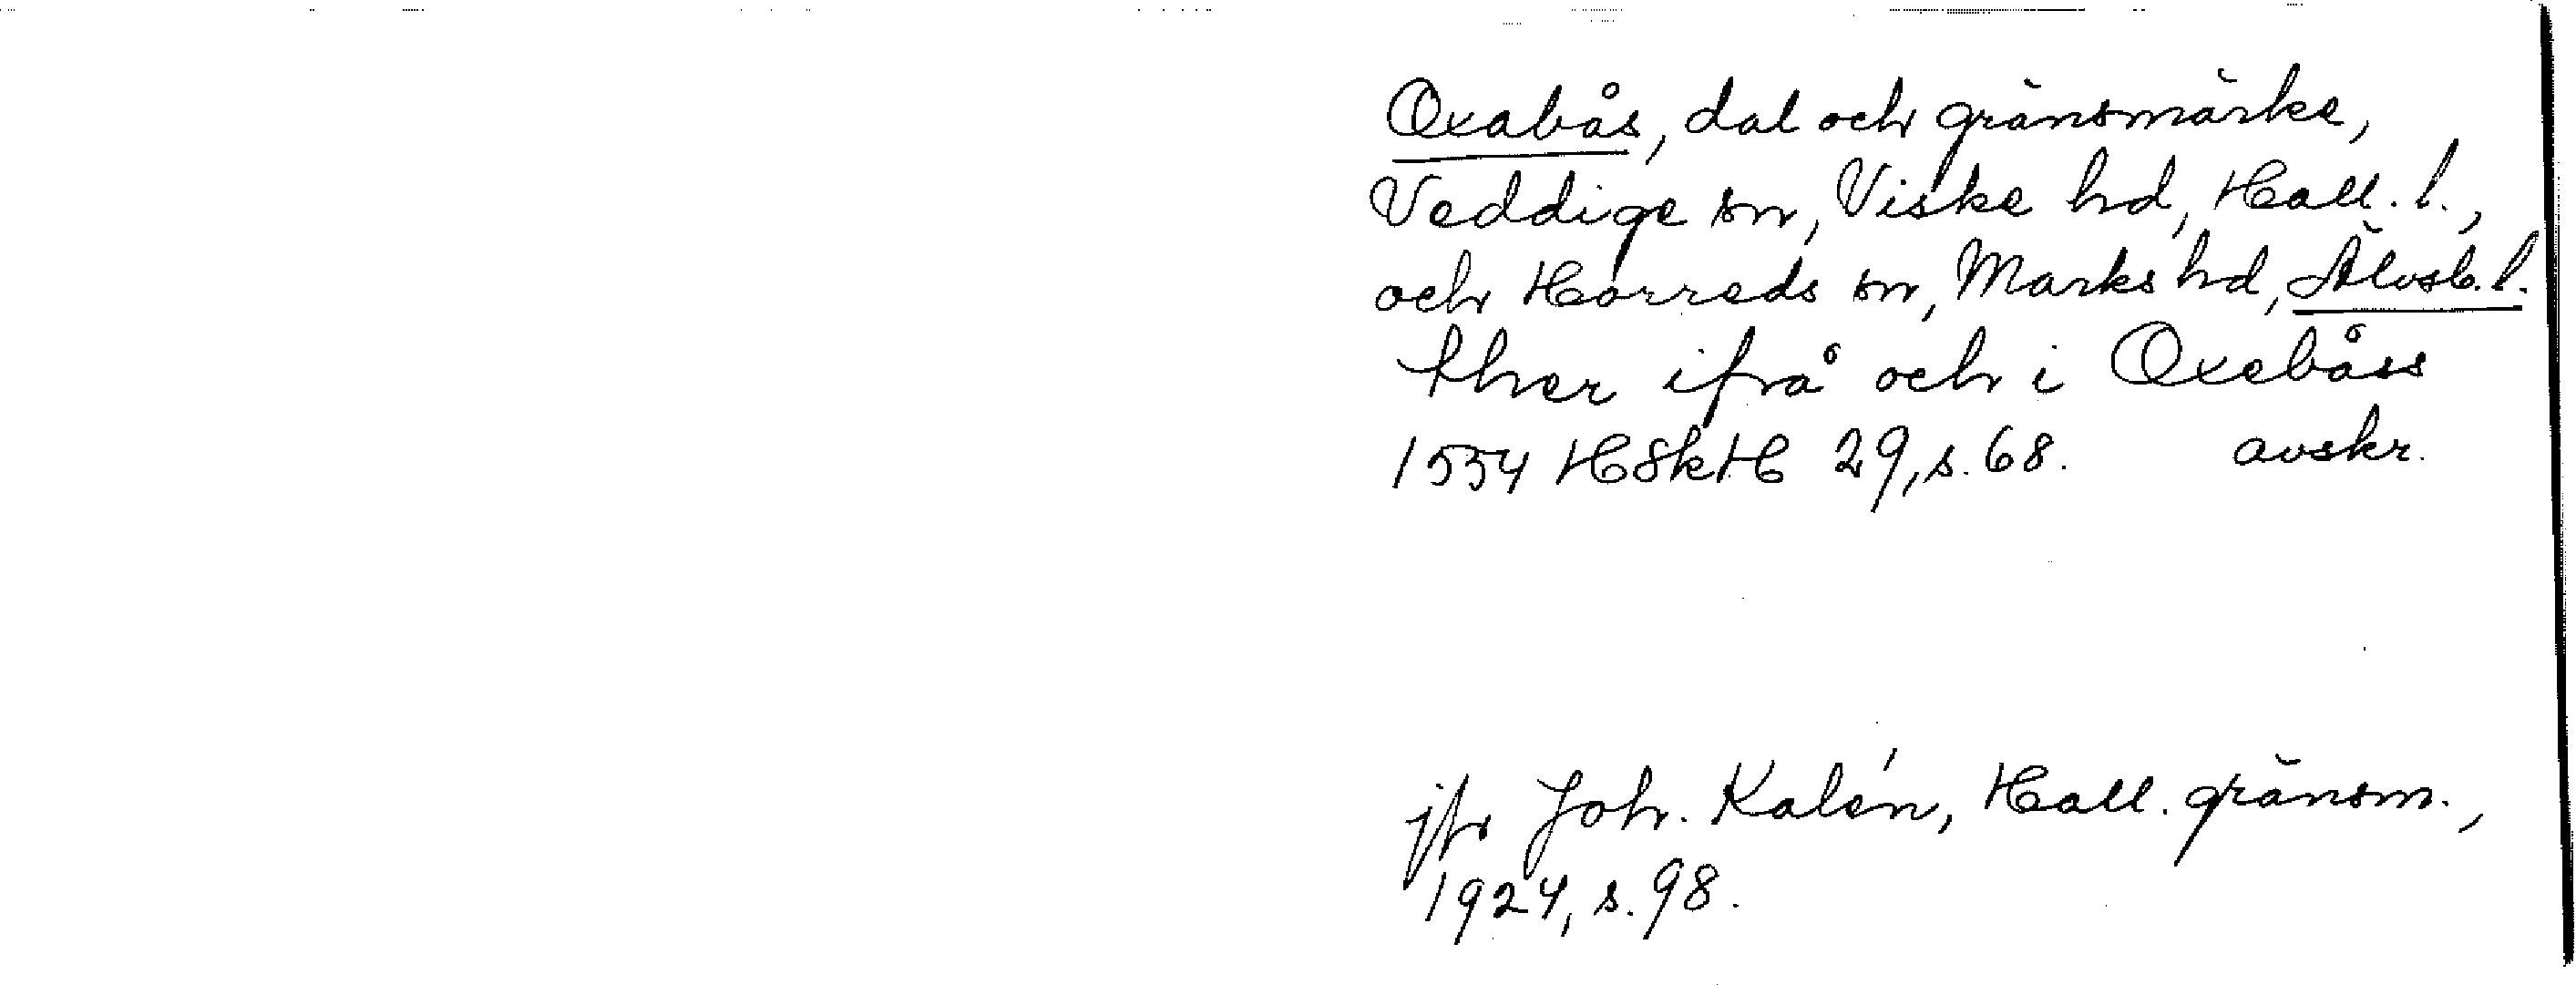 Oxabås, dal och gränsmärke,
Veddige sn, Viske hd, Hall. l.,
och Horreds sn, Marks hd, Älvsb. l.
ther ifrå och i Oxebåss
1554 HSkH 29, s. 68. avskr.
jfr Joh. Kalén, Hall. gränsm.,
1924, s. 98.